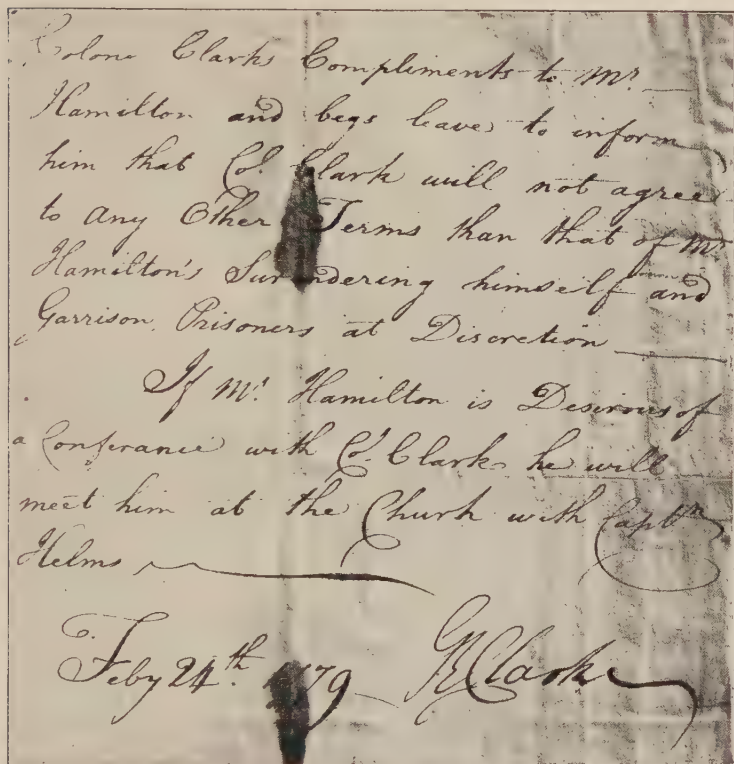 Colonel Clarks Compliments to Mr.
Hamilton and begs leave to inform
him that Col. Clark will not agree
to any Other Terms than that of Mr.
Hamilton's Surrendering himself and
Garrison Prisoners at Discretion
If Mr. Hamilton is Desirous of
a Conferance with Col. Clark he will
meet him at the Churh with Captn.
Helms
Feby 24th. 1779 GRClark